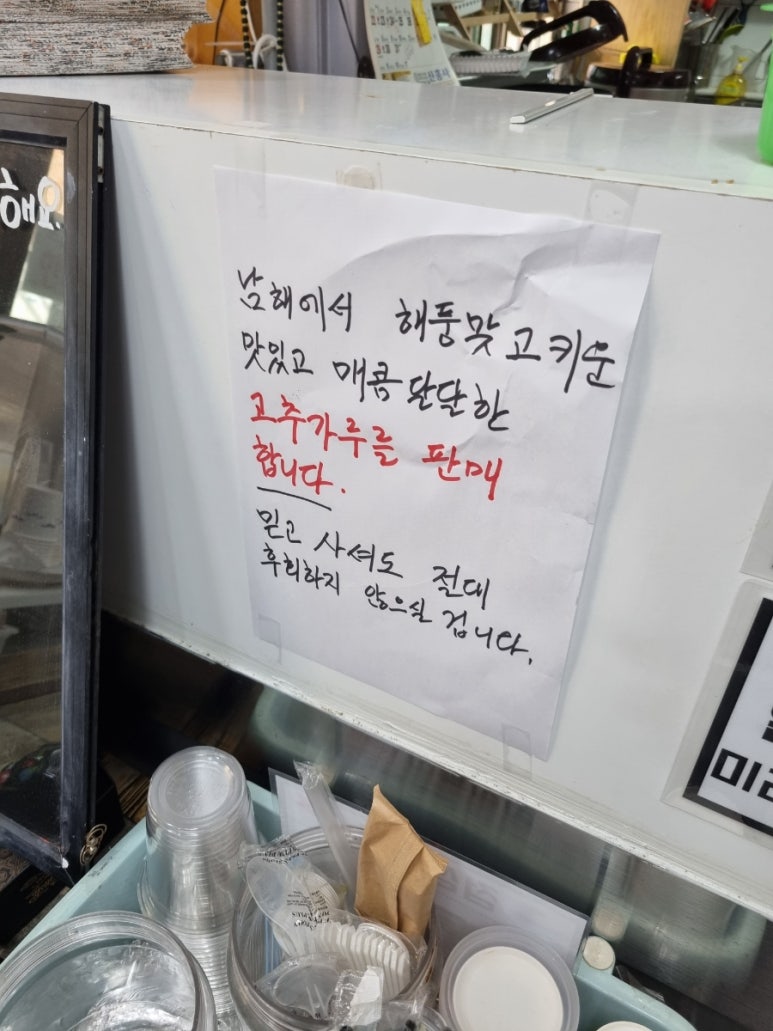 해요.
남해에서 해풍맞고키운
맛있고 매콤달달한
고추가루를 판매
합니다.
믿고 사셔도 절대
후회하지 않으실 겁니다.
미리